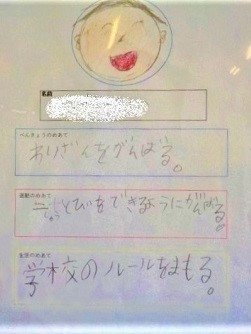 名前
べんきょうのめあて
わりざんをがんばる。
運動のめあて
二じゅうとびをできるようにがんばる。
生活のめあて
学校のルールをまもる。